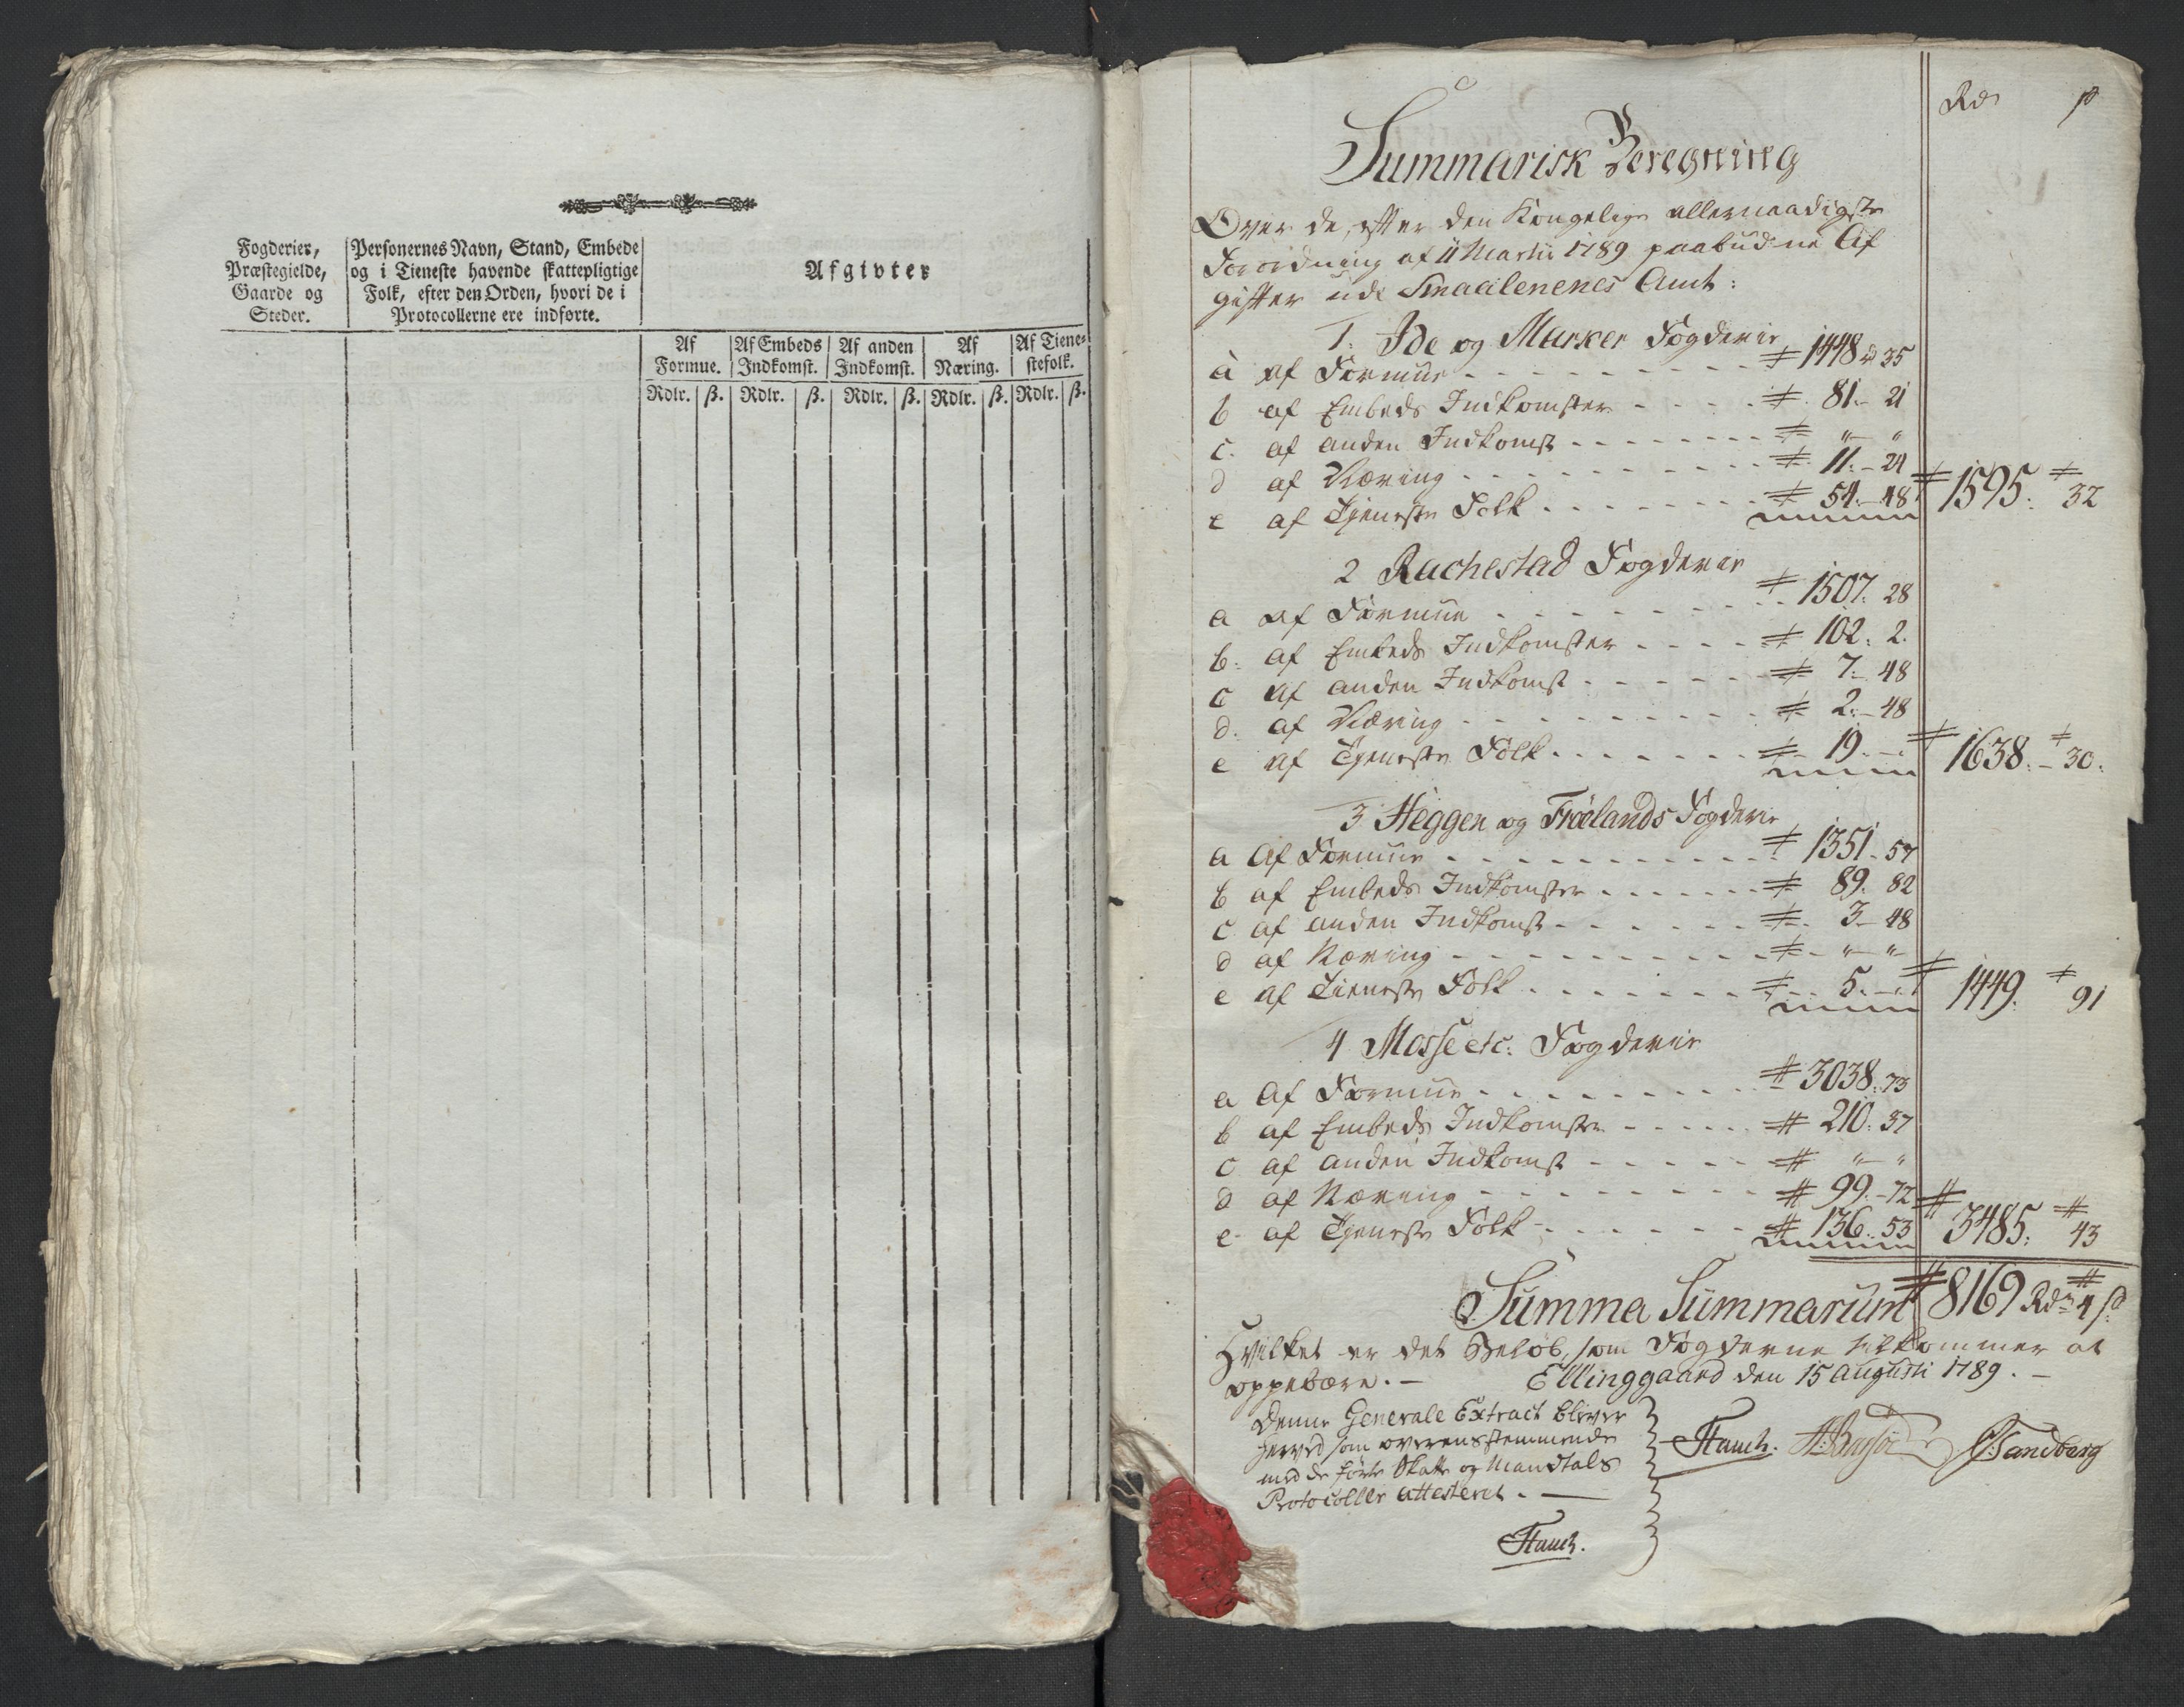 Fogderier,
Præstegielde,
Gaarde og
Steder.
Personernes Navn, Stand, Embede
og i Tieneste havende skattepligtige
Folk, efter den Orden, hvori de i
Protocollerne ere indførte.
Afgivter
Af
Formue.
Af Embeds
Indkomst.
Af anden
Indkomst.
Af
Næring.
Af Tiene-
stefolk.
Rdlr. ß. Rdlr. ß. Rdlr. ß. Rdlr. ß. Rdlr. ß.
Rdr ß
Summarisk Beregning
Over de, efter den Kongelige allernaadigste
Forordning af 11 Martii 1789 paabudne Af
gifter udi Smaalenenes Amt:
1. Ide og Marker Fogderie
a af Formue - - - 1448 rd 35
b af Embeds Indkomster - - - 81.- 21
c. af anden Indkomst - - - " - "
d af Næring - - - 11.- 24
e af Tjeneste Folk - - - 54.- 48 1595. 32
2 Rachestad Fogderie
a af Formue - - - 1507. 28
b. af Embeds Indkomster - - - 102. 2.
c af anden Indkomst - - - 7.- 48
d. af Næring - - - 2.- 48
e af Tjeneste Folk - - - 19. - . 1638.- 30.
3 Heggen og Frøelands Fogderie
a Af Formue - - - 1351.- 57
b af Embeds Indkomster - - - 89. 82
c af anden Indkomst - - - 3.- 48
d af Næring - - - " - "
e af Tieneste Folk - - - 5. - . 1449. 91
4 Mosse etc: Fogderie
a Af Formue - - - 3038. 73
b af Embeds Indkomster - - - 210. 37
c af anden Indkomst - - - " - "
d af Næring - - - 99.- 72
e- af Tjeneste Folk - - - 136. 53 3485. 43
Summa Summarum 8169 Rdr 4 ß
Hvilket er det Beløb, som Fogderne tilkommer at
oppebære. - Ellinggaard den 15 Augusti 1789. -
Denne Generale Extract bliver
herved som overensstemmende
med de førte Skatte og Mandtals
Protocoller attesteret. -
Stauch. Sandberg
Stauch.